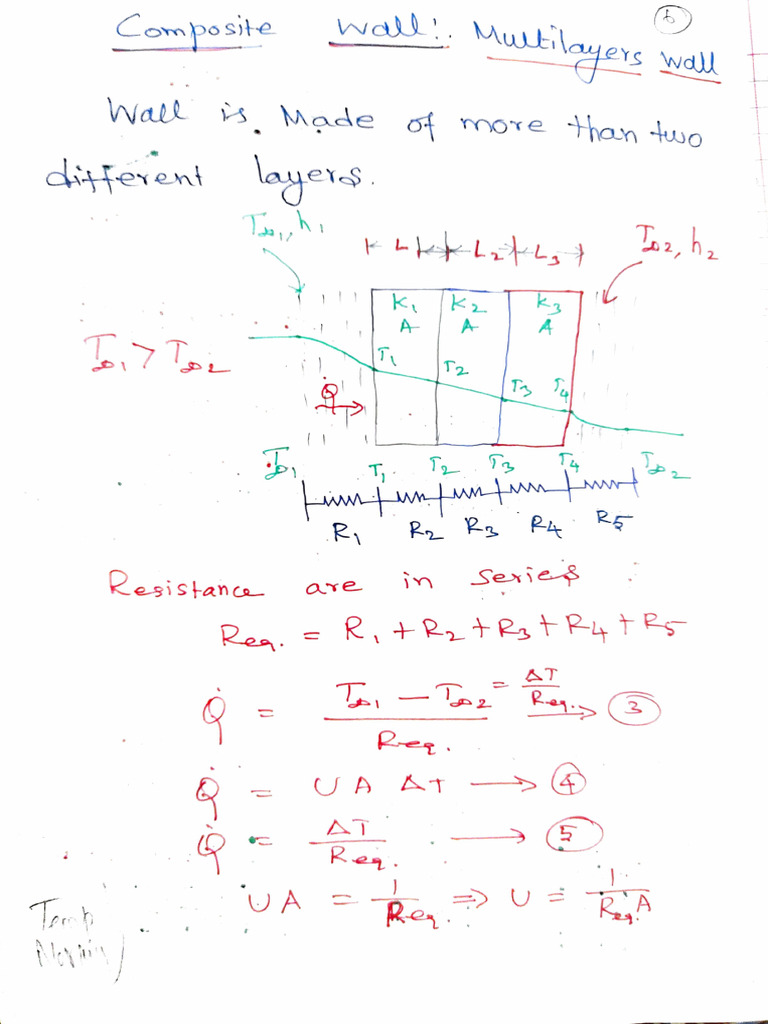 6
Composite Wall:. Multilayers Wall
Wall is Made of more than two
different layers.
T∞1, h1
L L2 L3
T∞2, h2
K1 K2 K3
A A A
T∞1 > T∞2
T1 T2 T3 T4
Q̇
T∞1 T1 T2 T3 T4 T∞2
R1 R2 R3 R4 R5
Resistance are in series :
Req. = R1 + R2 + R3 + R4 + R5
Q̇ = T∞1 - T∞2 / Req. = ΔT / Req. → 3
Q̇ = U A ΔT → 4
Q̇ = ΔT / Req. → 5
UA = 1 / Req. ⇒ U = 1 / Req A
Temp